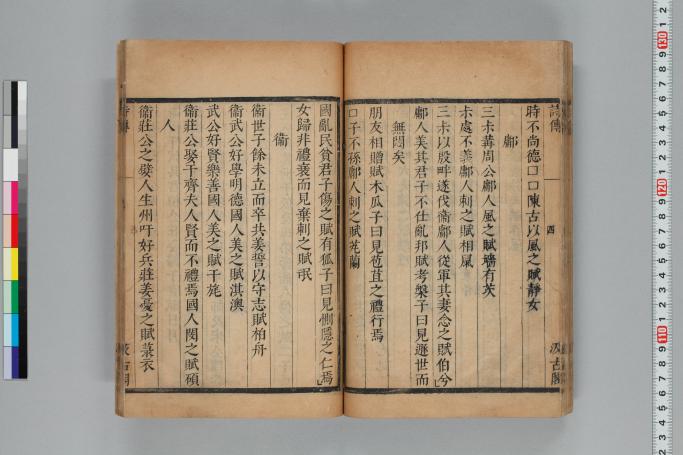 詩傳
四
汲古閣
時不尚德囗囗陳古以風之賦靜女
鄘
三未冓周公鄘人風之賦墻有茨
未處不義鄘人刺之賦相鼠
三未以殷畔遂伐衛鄘人從軍其妻念之賦伯兮
鄘人美其君子不仕亂邦賦考槃子曰見遯世而
無悶矣
朋友相贈賦木瓜子曰見苞苴之禮行焉
囗子不孫鄘人刺之賦芄蘭
國亂民貧君子傷之賦有狐子曰見惻隱之仁焉
女歸非禮衰而見棄刺之賦氓
衛
衛世子餘未立而卒共姜誓以守志賦柏舟
衛武公好學明德國人美之賦淇澳
武公好賢樂善國人美之賦干旄
衛莊公娶于齊夫人賢而不禮焉國人閔之賦碩
人
衛莊公之嬖人生州吁好兵莊姜憂之賦菉衣